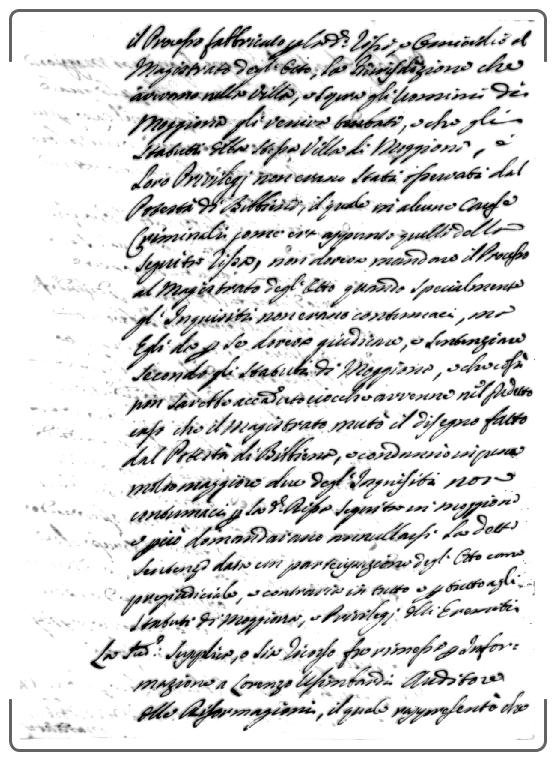 il Processo fabbricato p la d.ª Rissa, e Omicidio al
Magistrato degl' Otto, la Giurisdizione che
avevano nella Villa, e sopra gli Uomini di
Moggiona gli veniva turbata, e che gli
Statuti della stessa Villa di Moggiona, e
Loro Privilegj non erano stati osservati dal
Potestà di Bibbiena, il quale in alcune Cause
Criminali, come era appunto quella della
seguita Rissa, non doveva mandare il Processo
al Magistrato degl' Otto quando specialmente
gl' Inquisiti non erano contumaci, ma
Egli da p se doveva giudicare, e sentenziare
secondo gli Statuti di Moggiona, e che così
non sarebbe accaduto ciò che avvenne nel sudetto
caso che il Magistrato mutò il disegno fatto
dal Potestà di Bibbiena, e condannò in pena
molto maggiore due degl' Inquisiti non
contumaci p la d.ª Rissa seguita in Moggiona
e però domandavano annullarsi la detta
Sentenza data con partecipazione degl' Otto come
pregiudiciale, e contraria in tutto e p tutto agli
Statuti di Moggiona, e Privilegj dell' Eremiti
La Sud.ª Supplica, o sia Ricorso fu rimessa p Infor-
mazione a Lorenzo Usimbardi Auditore
delle Riformagioni, il quale rappresentò che